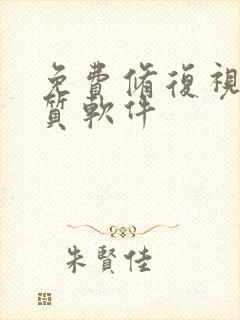 免費脩復視
質軟件
朱賢佳